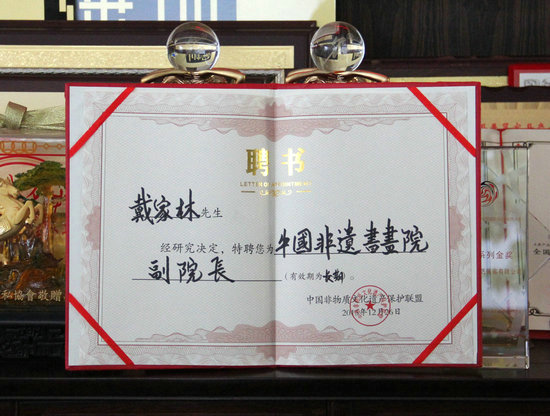 聘书
LETTER OF APPOINTMENT
戴家林先生
经研究决定，特聘您为中國非遺書畫院
副院長（有效期为長期）。
中国非物质文化遗产保护联盟
私協會敬贈
系列金奖
全國